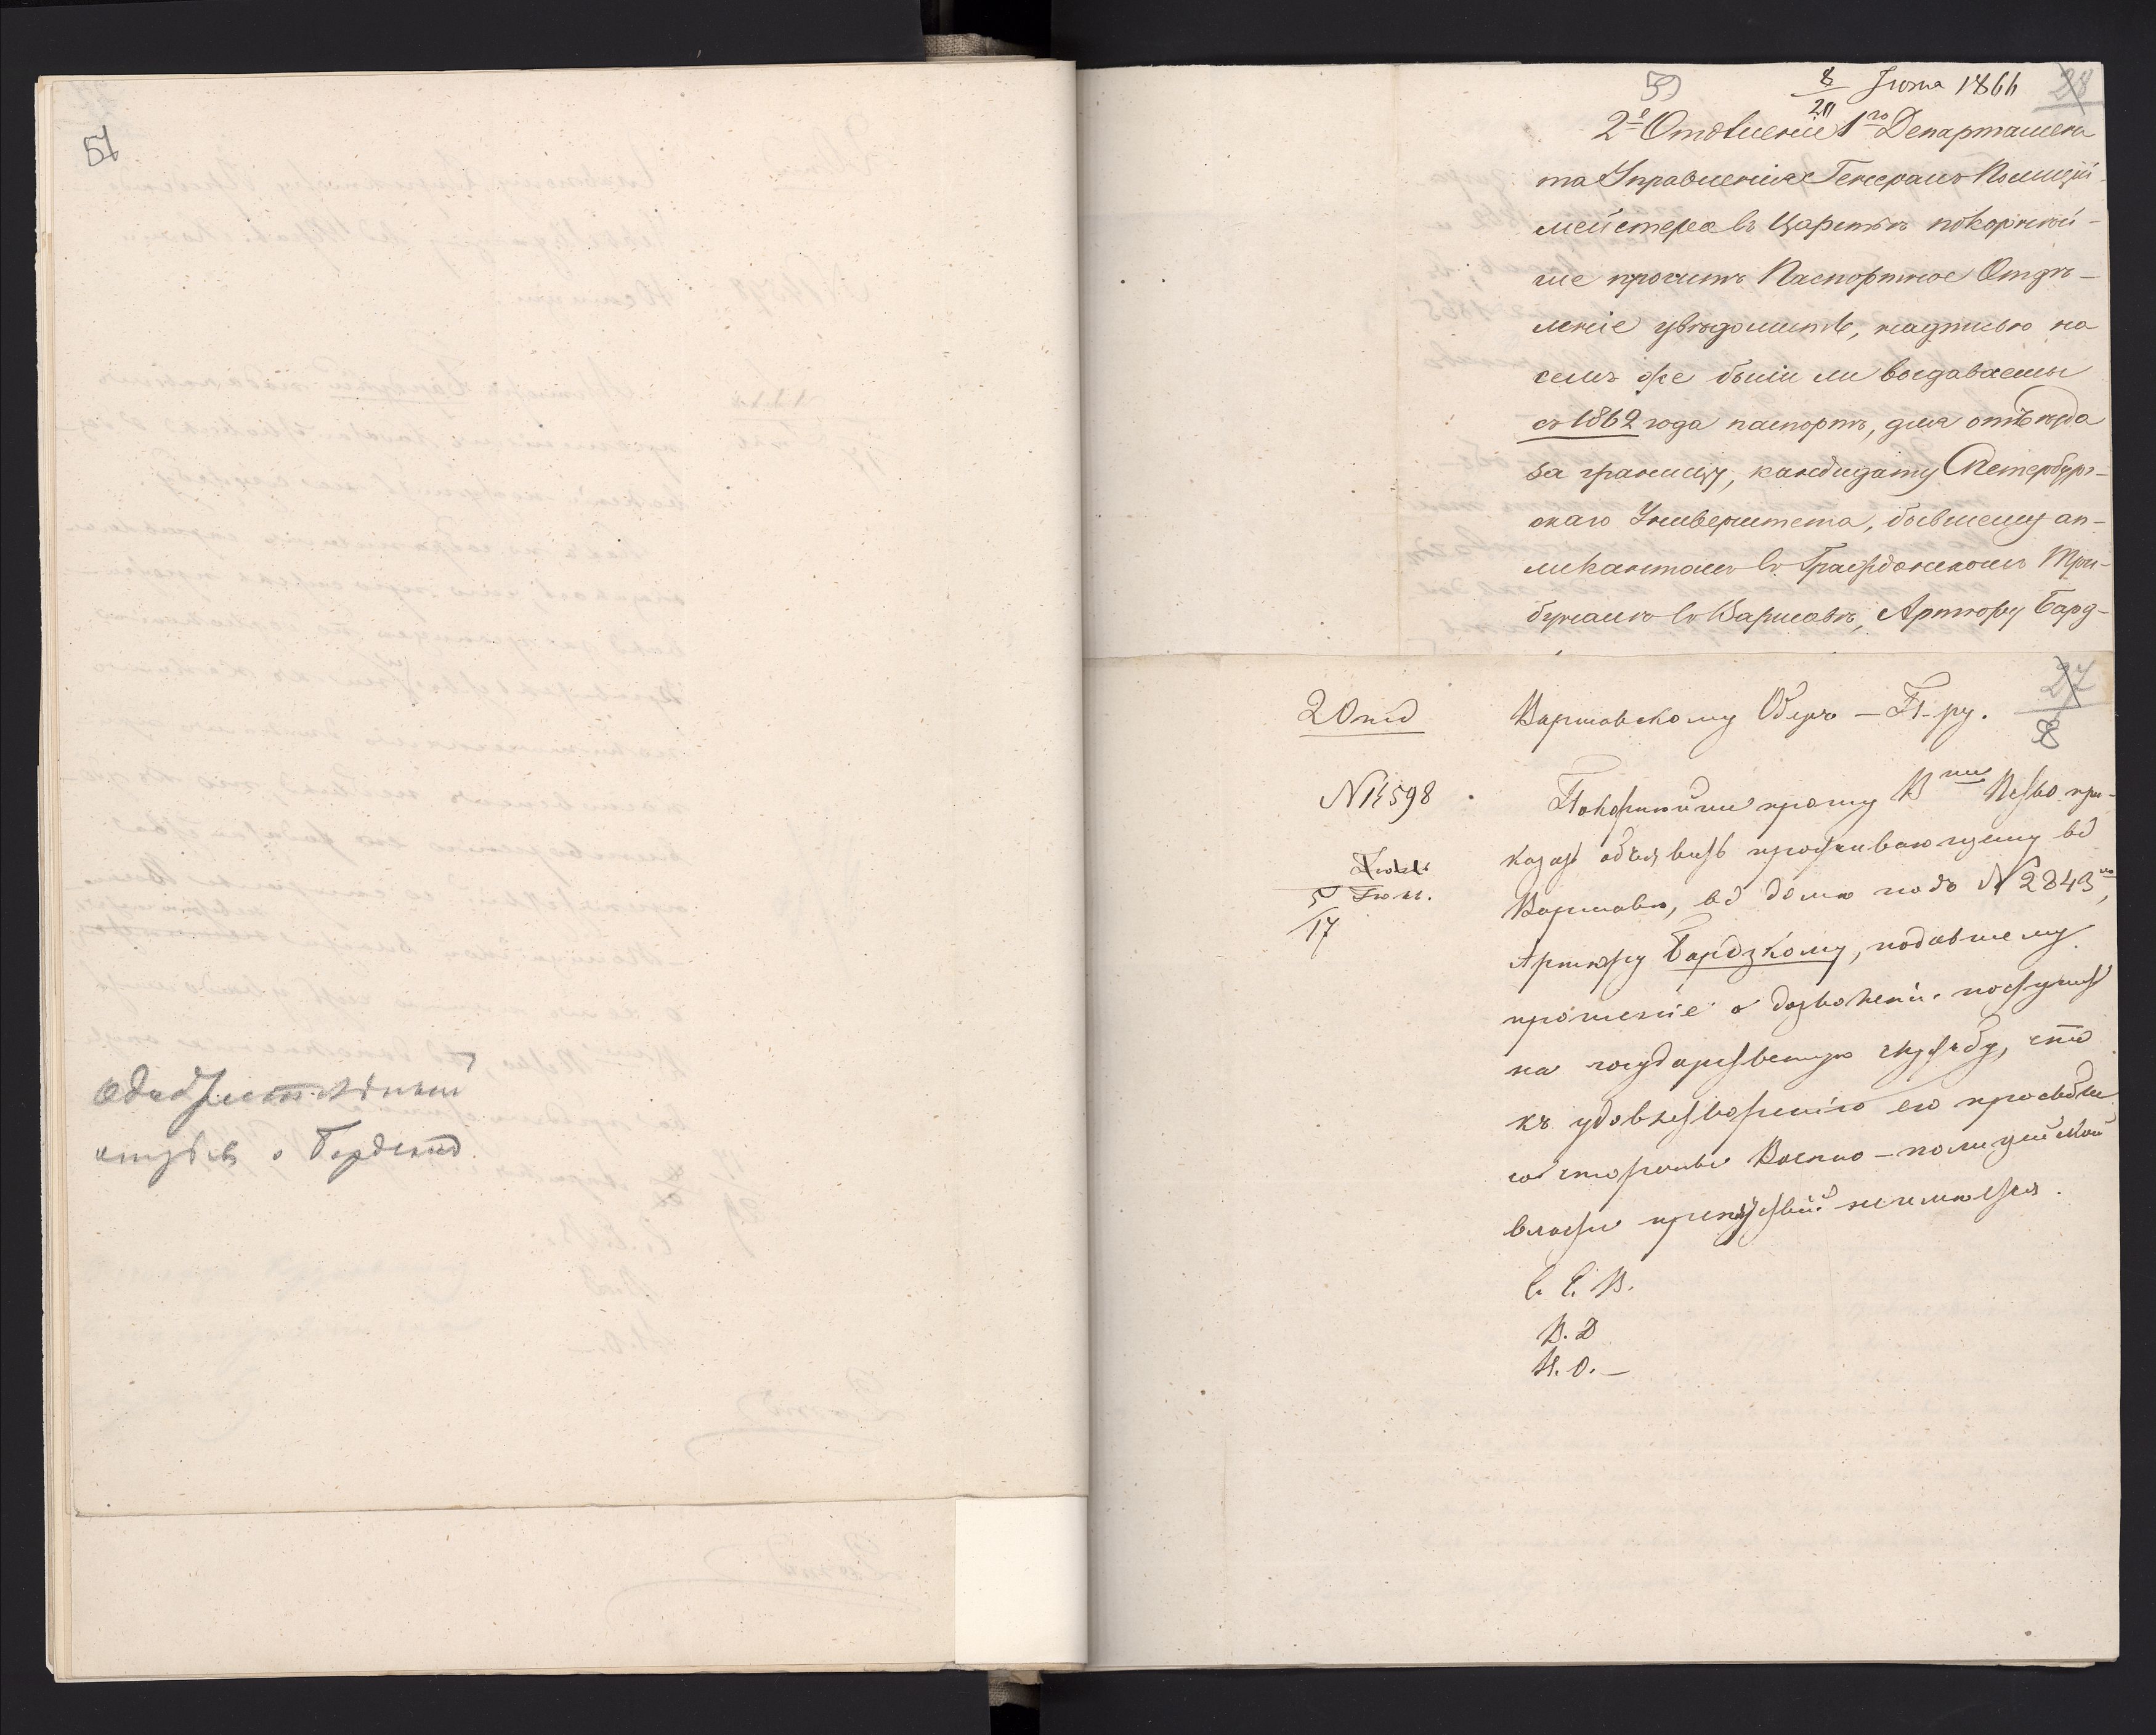 51
отзывъ о Бардскомъ
59
28
8/20 Іюня 1866
2е Отдѣленіе 1го Департамен
та Управленія Генералъ Полицій-
мейстера въ Царствѣ покорнѣй-
ше проситъ Паспортное Отдѣ-
леніе увѣдомить, надписью на
семъ же были ли выдаваемы
съ 1862 года паспортъ, для отъѣзда
за границу, кандидату СПетербург-
скаго Университета, бывшему ап-
ликантомъ въ Гражданскомъ Три-
буналѣ въ Варшавѣ, Артюру Бард-
27
8
2 Отд
Варшавскому Оберъ-П-ру.
N 14598
Покорнѣйше прошу Вше Псво при-
казать объявить проживающему въ
5/17 Іюня.
Варшавѣ, въ домѣ подъ N 2843мъ,
Артюру Бардзкому, подавшему
прошеніе о дозволеніи поступить
на государственную службу, что
къ удовлетворенію его просьбы
со стороны Военно-полицейской
власти препятствій не имѣется.
С. Е. В.
В. Д
Н. О.-